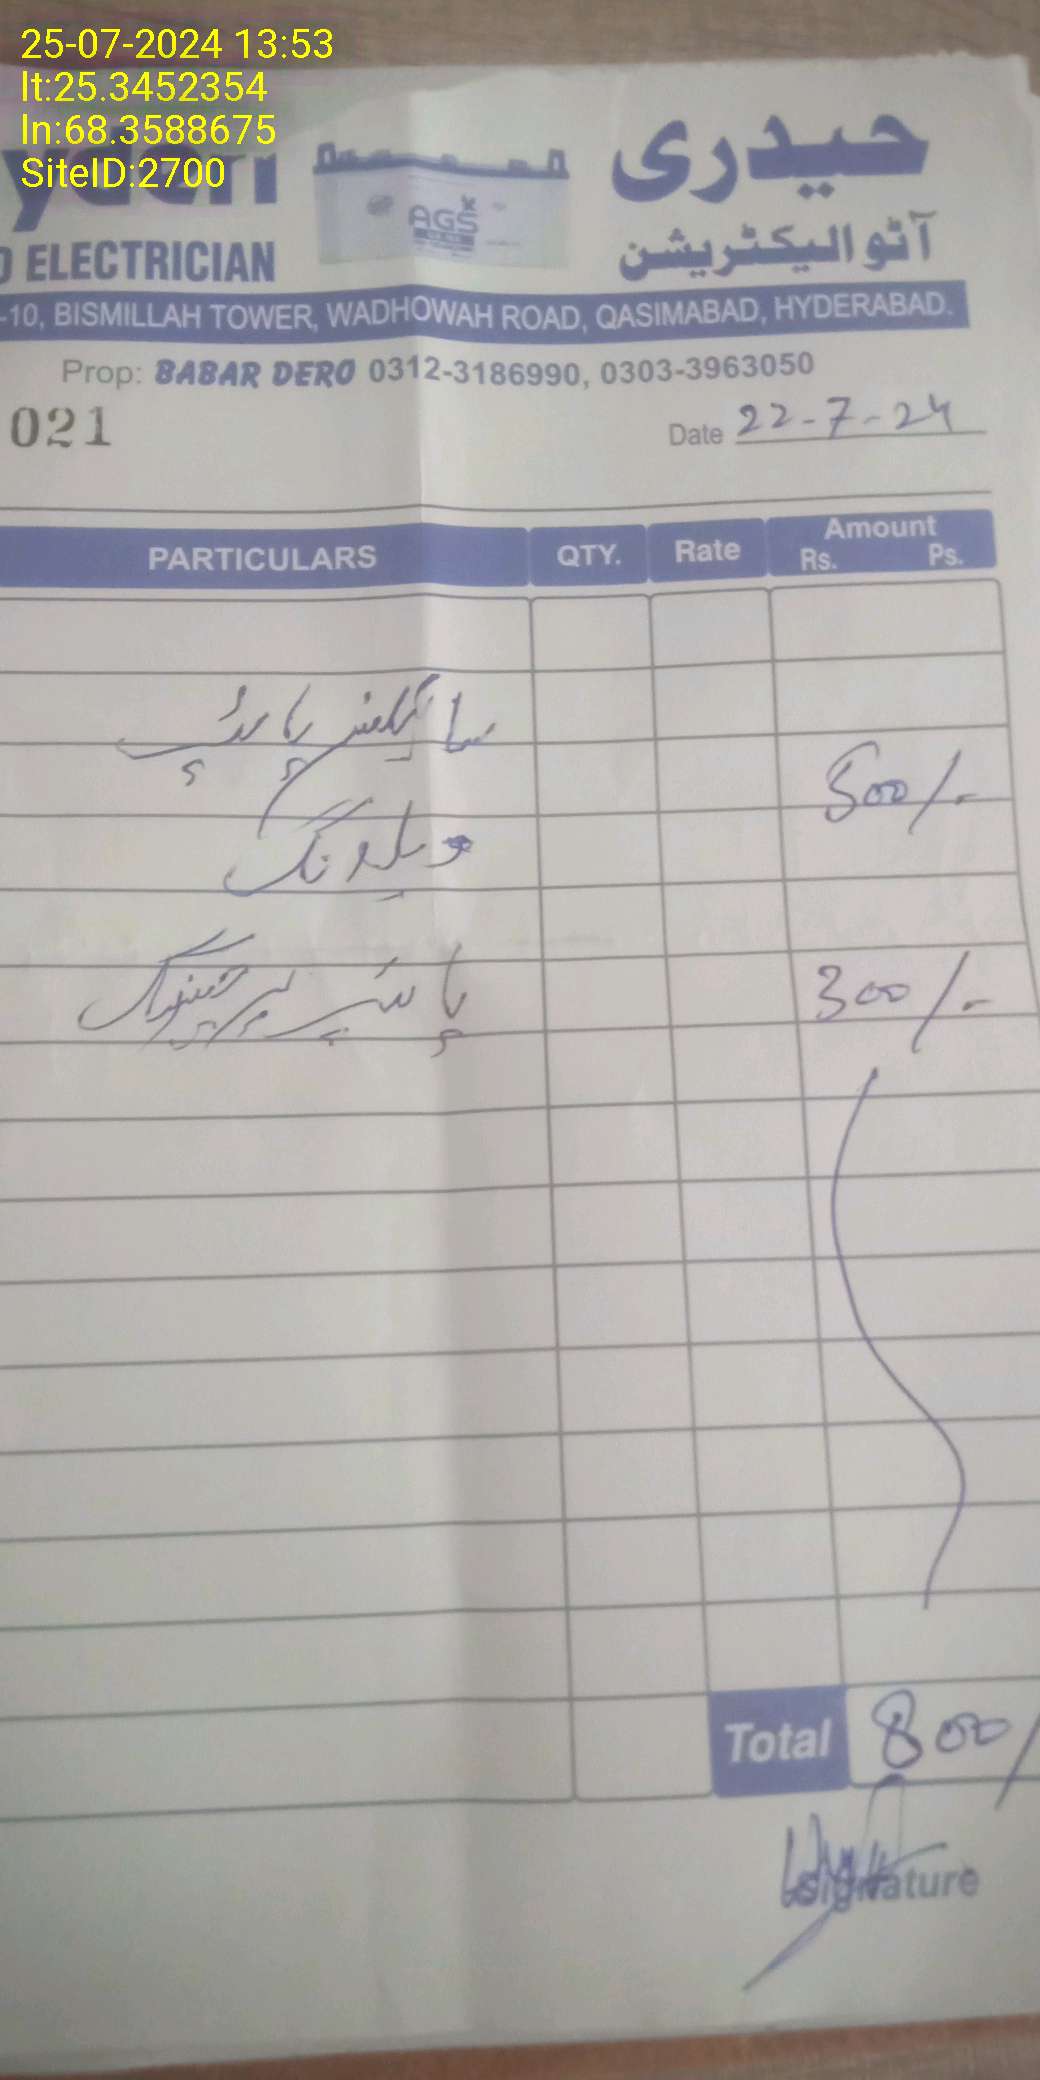 25-07-2024 13:53
lt:25.3452354
ln:68.3588675
SiteID:2700
yderi
حیدری
AGS
ELECTRICIAN
آٹو الیکٹریشن
-10, BISMILLAH TOWER, WADHOWAH ROAD, QASIMABAD, HYDERABAD.
Prop: BABAR DERO 0312-3186990, 0303-3963050
021
Date 22-7-24
PARTICULARS QTY. Rate Amount
Rs. Ps.
سائلینسر پائپ
500/-
ویلڈنگ
پائپ 300/-
Total 800/
Signature